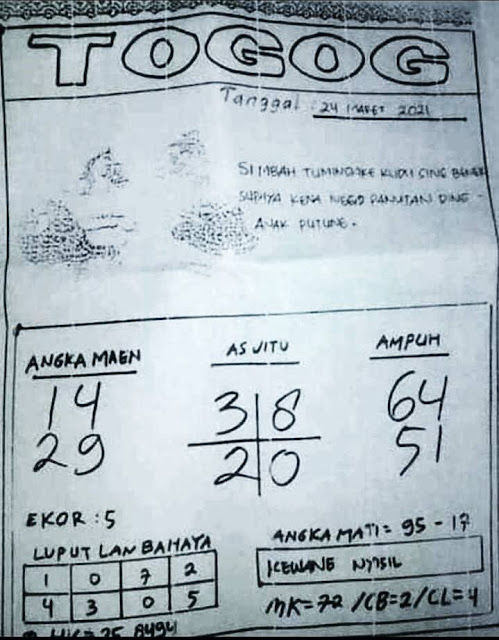 TOGOG
Tanggal : 24 MARET 2021
SIMBAH TUMINDAKE KUDU SING BENER
SUPAYA KENA NEGO PANUTAN DING -
ANAK PUTUNE.
ANGKA MAEN
14
29
AS JITU
3 8
2 0
AMPUH
64
51
EKOR : 5
LUPUT LAN BAHAYA
1 0 7 2
4 3 0 5
ANGKA MATI = 95 - 17
KEWANE
MK = 72 /CB = 2/CL = 4